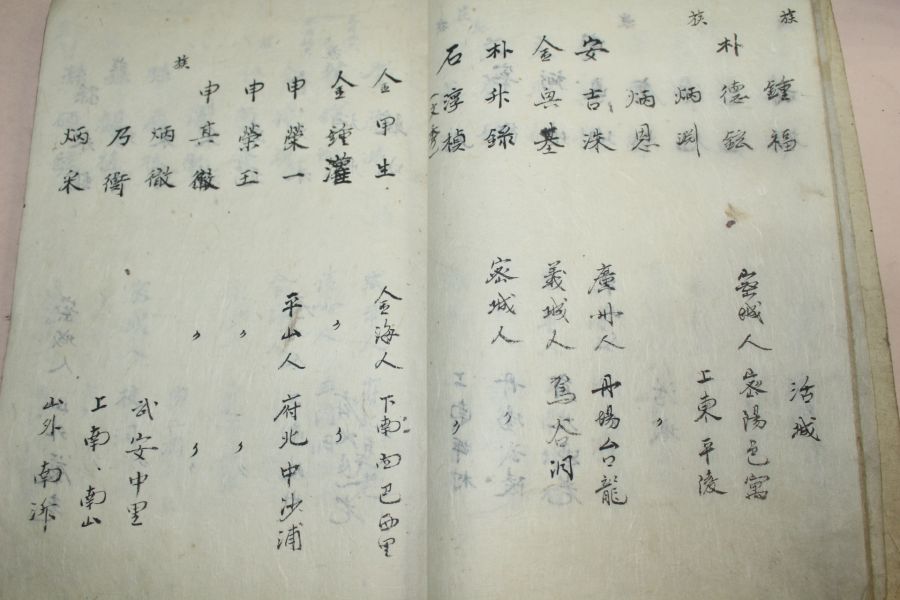 族 鍾福 活城
朴德鉉 密城人 密陽邑寓
族 炳淵 上東平陵
炳恩 〃
安吉洙 廣州人 丹場台龍
金奥基 義城人 鳥谷洞
朴升錄 密城人
石淳楨 〃
金甲生 金海人 下南面巴西里
金鍾灌 〃 〃
申榮一 平山人 府北中沙浦
申榮玉 〃 〃
申真徹 〃 〃
族 炳徹 武安中里
乃衡 上南、南山
炳采 山外南沂